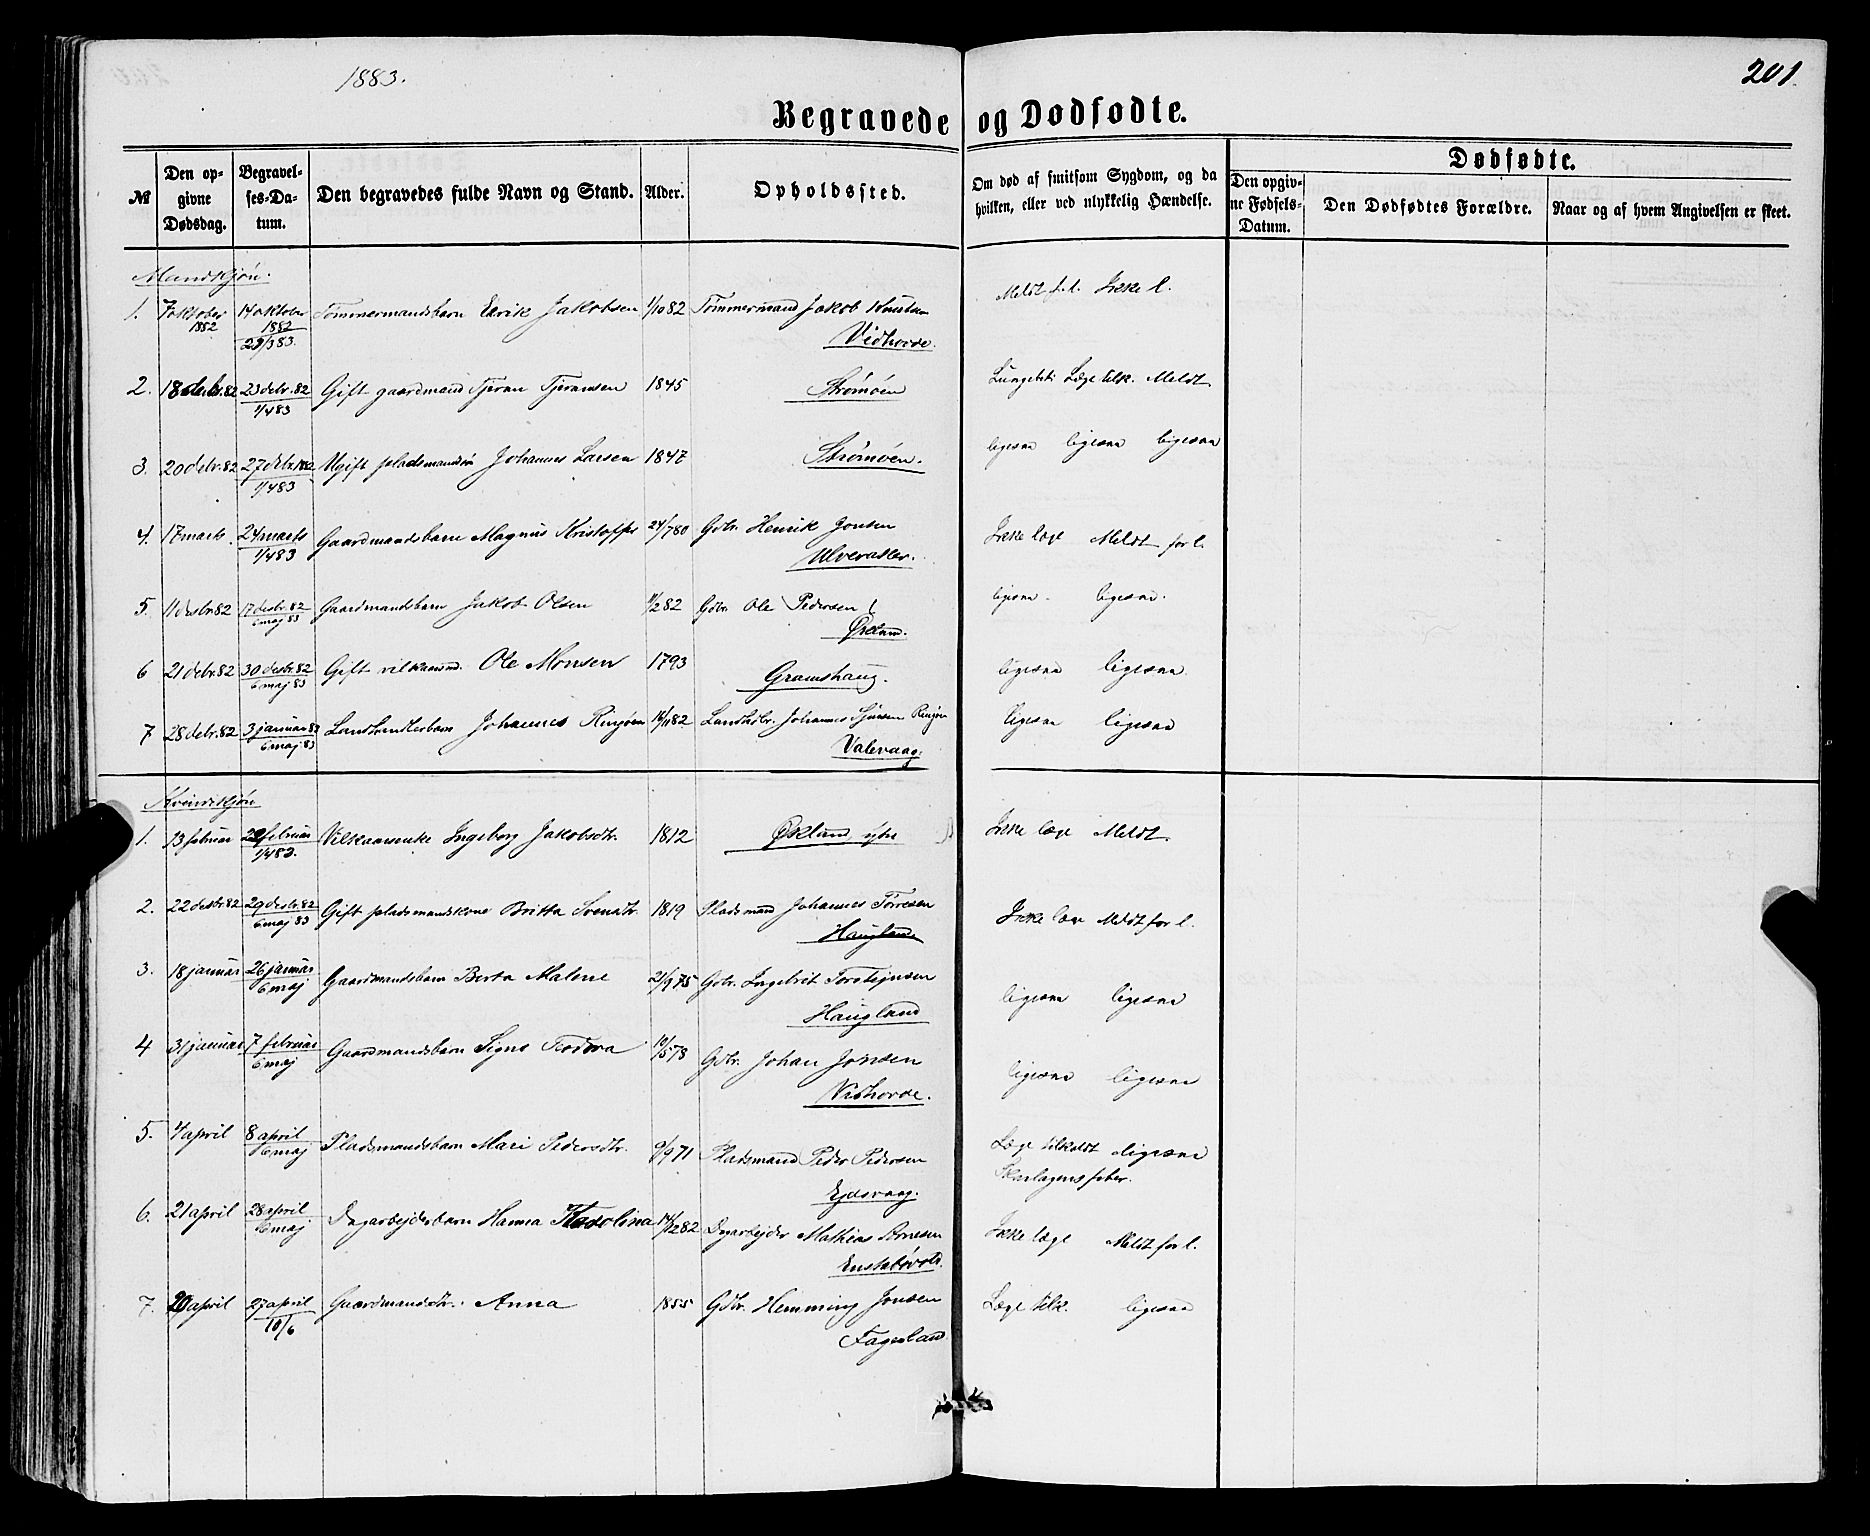 1883.
201.
Begravede og Dødfødte.
№
Den opgivne Dødsdag.
Begravelses-Datum.
Den begravedes fulde Navn og Stand.
Alder.
Opholdssted.
Om død af smitsom Sygdom, og da hvilken, eller ved ulykkelig Hændelse.
Dødfødte.
Den opgivne Fødsels-Datum.
Den Dødfødtes Forældre.
Naar og af hvem Angivelsen er skeet.
Mandkjøn.
1. 7 oktober 1882 14 oktober 1882 29/3 83. Tømmermandsbarn Eerik Jakobsen 1/10 82 Tømmermand Jakob Knutsen Meldt f. l. Ikke l.
Vidhovde.
2. 18 debr. 82 23 debr. 82 1/4 83 Gift gaardmand Tjeran Tjeransen 1845 Strømøen Læge tilk. Meldt
3. 20 debr. 82 27 debr. 1882 1/4 83 Ugift pladsmandssøn Johannes Larsen 1847 Strømøen. ligesaa ligesaa ligesaa
4. 17 marts 24 marts 1/4 83 Gaardmandsbarn Magnus Kristoffer 24/7 80 Gdbr. Henrik Jonsen Ikke læge Meldt for l.
Ulveraker.
5. 11 desbr 82 17 desbr. 82 6 maj 83 Gaardmandsbarn Jakob Olsen 11/2 82 Gdbr. Ole Pedersen ligesaa. ligesaa.
Økland.
6 21 debr. 82 30 desbr. 82 6 maj 83 Gift vilkaarsmd. Ole Monsen 1793 Gramshaug. ligesaa ligesaa
7 28 debr. 82 3 januar 83 6 maj 83 Landhandlerbarn Johannes Ringøen 16/11 82 Landhdlr. Johannes Sjursen Ringøen ligesaa ligesaa
Valevaag.
Kvindekjøn
1. 13 februar februar 1/4 83. Vilkaarsenke Ingeborg Jakobsdtr. 1812 Økland ytre Ikke læge Meldt.
2. 22 desbr 82 29 desbr. 82 6 maj 83 Gift pladsmandskone Britta Svensdtr. 1819 Pladsmand Johannes Torresen Ikke læge Meldt for l.
Haugland
3. 18 januar 26 januar 6 maj Gaardmandsbarn Berta Malene 21/9 75 Gdbr. Ingebrit Torstejnsen ligesaa ligesaa
Haugland
4 31 januar 7 februar 6 maj Gaardmandsbarn Signe Teodora 10/5 78 Gdbr. Johan Jonsen ligesaa ligesaa
Vidhovde.
5. 4 april 8 april 6 maj Pladsmandsbarn Mari Pedersdtr. 9/9 71 Pladsmand Peder Pedersen Læge tilkaldt ligesaa
Skarlagensfeber.
Ejdsvaag.
6. 21 april 28 april 6 maj Dagarbejdersbarn Hanna Karolina 14/12 82 Dagarbejder Mathias Arnesen Ikke læge Meldt for l.
7. 20 april 27 april 10/6 Gaardmandsdtr. Anna 1855 Gdbr. Hemming Jonsen Læge tilk. ligesaa
Fagerland